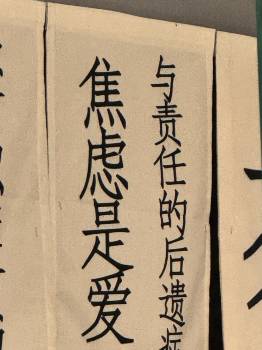 焦虑是爱
与责任的后遗症